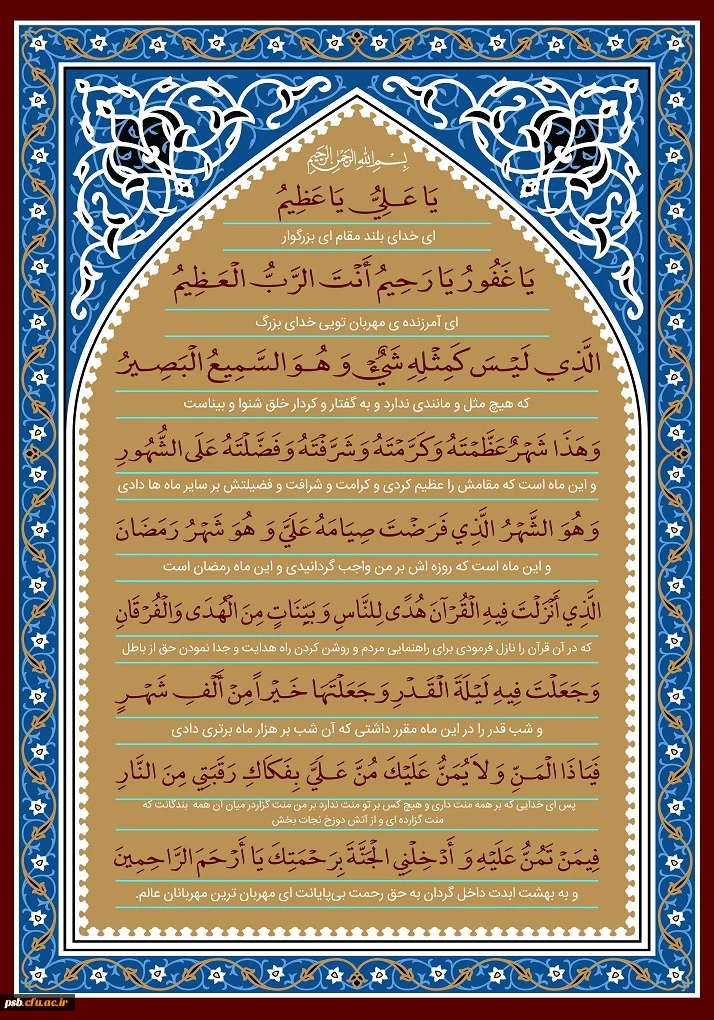 بِسْمِ اللهِ الرَّحْمٰنِ الرَّحِيمِ
يَا عَلِيُّ يَا عَظِيمُ
ای خدای بلند مقام ای بزرگوار
يَا غَفُورُ يَا رَحِيمُ أَنْتَ الرَّبُّ الْعَظِيمُ
ای آمرزنده ی مهربان تویی خدای بزرگ
الَّذِي لَيْسَ كَمِثْلِهِ شَيْءٌ وَ هُوَ السَّمِيعُ الْبَصِيرُ
که هیچ مثل و مانندی ندارد و به گفتار و کردار خلق شنوا و بیناست
وَ هَذَا شَهْرٌ عَظَّمْتَهُ وَ كَرَّمْتَهُ وَ شَرَّفْتَهُ وَ فَضَّلْتَهُ عَلَى الشُّهُورِ
و این ماه است که مقامش را عظیم کردی و کرامت و شرافت و فضیلتش بر سایر ماه ها دادی
وَ هُوَ الشَّهْرُ الَّذِي فَرَضْتَ صِيَامَهُ عَلَيَّ وَ هُوَ شَهْرُ رَمَضَانَ
و این ماه است که روزه اش بر من واجب گردانیدی و این ماه رمضان است
الَّذِي أَنْزَلْتَ فِيهِ الْقُرْآنَ هُدًى لِلنَّاسِ وَ بَيِّنَاتٍ مِنَ الْهُدَى وَالْفُرْقَانِ
که در آن قرآن را نازل فرمودی برای راهنمایی مردم و روشن کردن راه هدایت و جدا نمودن حق از باطل
وَ جَعَلْتَ فِيهِ لَيْلَةَ الْقَدْرِ وَ جَعَلْتَهَا خَيْراً مِنْ أَلْفِ شَهْرٍ
و شب قدر را در این ماه مقرر داشتی که آن شب بر هزار ماه برتری دادی
فَيَا ذَا الْمَنِّ وَ لاَ يُمَنُّ عَلَيْكَ مُنَّ عَلَيَّ بِفَكَاكِ رَقَبَتِي مِنَ النَّارِ
پس ای خدایی که بر همه منت داری و هیچ کس بر تو منت ندارد بر من منت گزاردر میان آن همه بندگانت که
منت گزارده ای و از آتش دوزخ نجات بخش
فِيمَنْ تَمُنُّ عَلَيْهِ وَ أَدْخِلْنِي الْجَنَّةَ بِرَحْمَتِكَ يَا أَرْحَمَ الرَّاحِمِينَ
و به بهشت ابدت داخل گردان به حق رحمت بی‌پایانت ای مهربان ترین مهربانان عالم.
psb.cfu.ac.ir